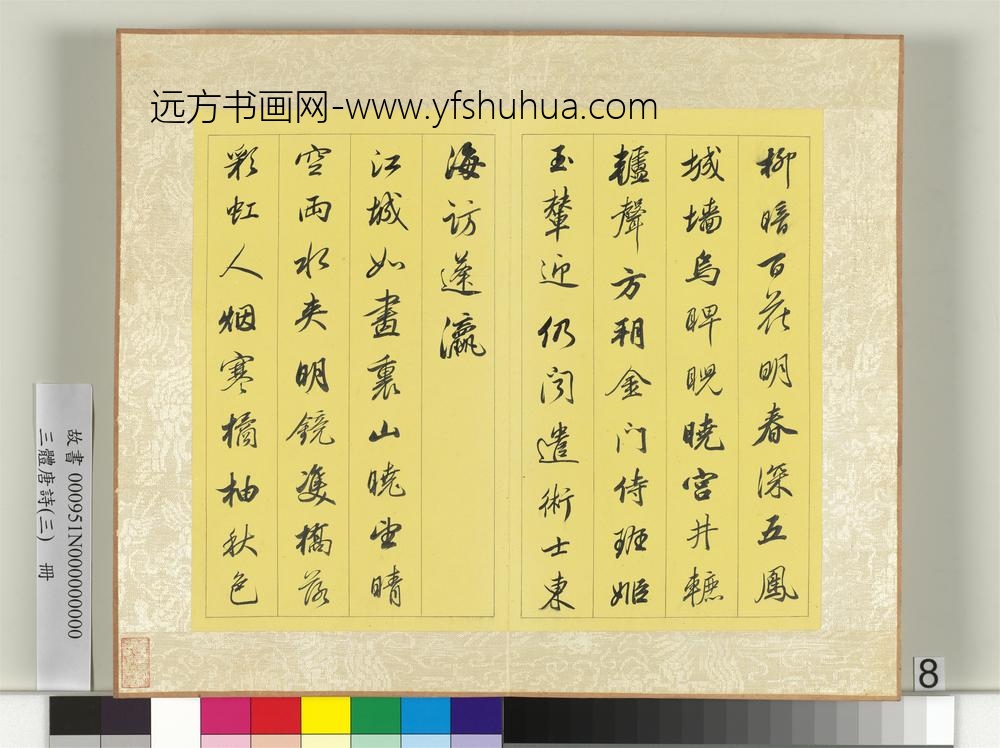 远方书画网-www.yfshuhua.com
柳暗百花明春深五鳳
城墙烏睥睨曉宮井轆
轤聲方朔金門侍班姬
玉輦迎仍聞遣術士東
海訪蓬瀛
江城如畫裏山曉望晴
空雨水夾明鏡雙橋落
彩虹人烟寒橘柚秋色
故書 000951N000000000
三體唐詩(三) 冊
8